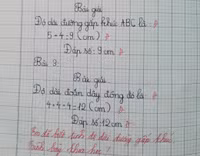 Bài giải
Độ dài đường gấp khúc ABC là:
5+4=9 (cm)
Đáp số: 9 cm
Bài 3:
Bài giải
Độ dài đoạn dây đồng đó là:
4+4+4=12 (cm)
Đáp số: 12 cm
độ dài đường gấp khúc
Trình bày